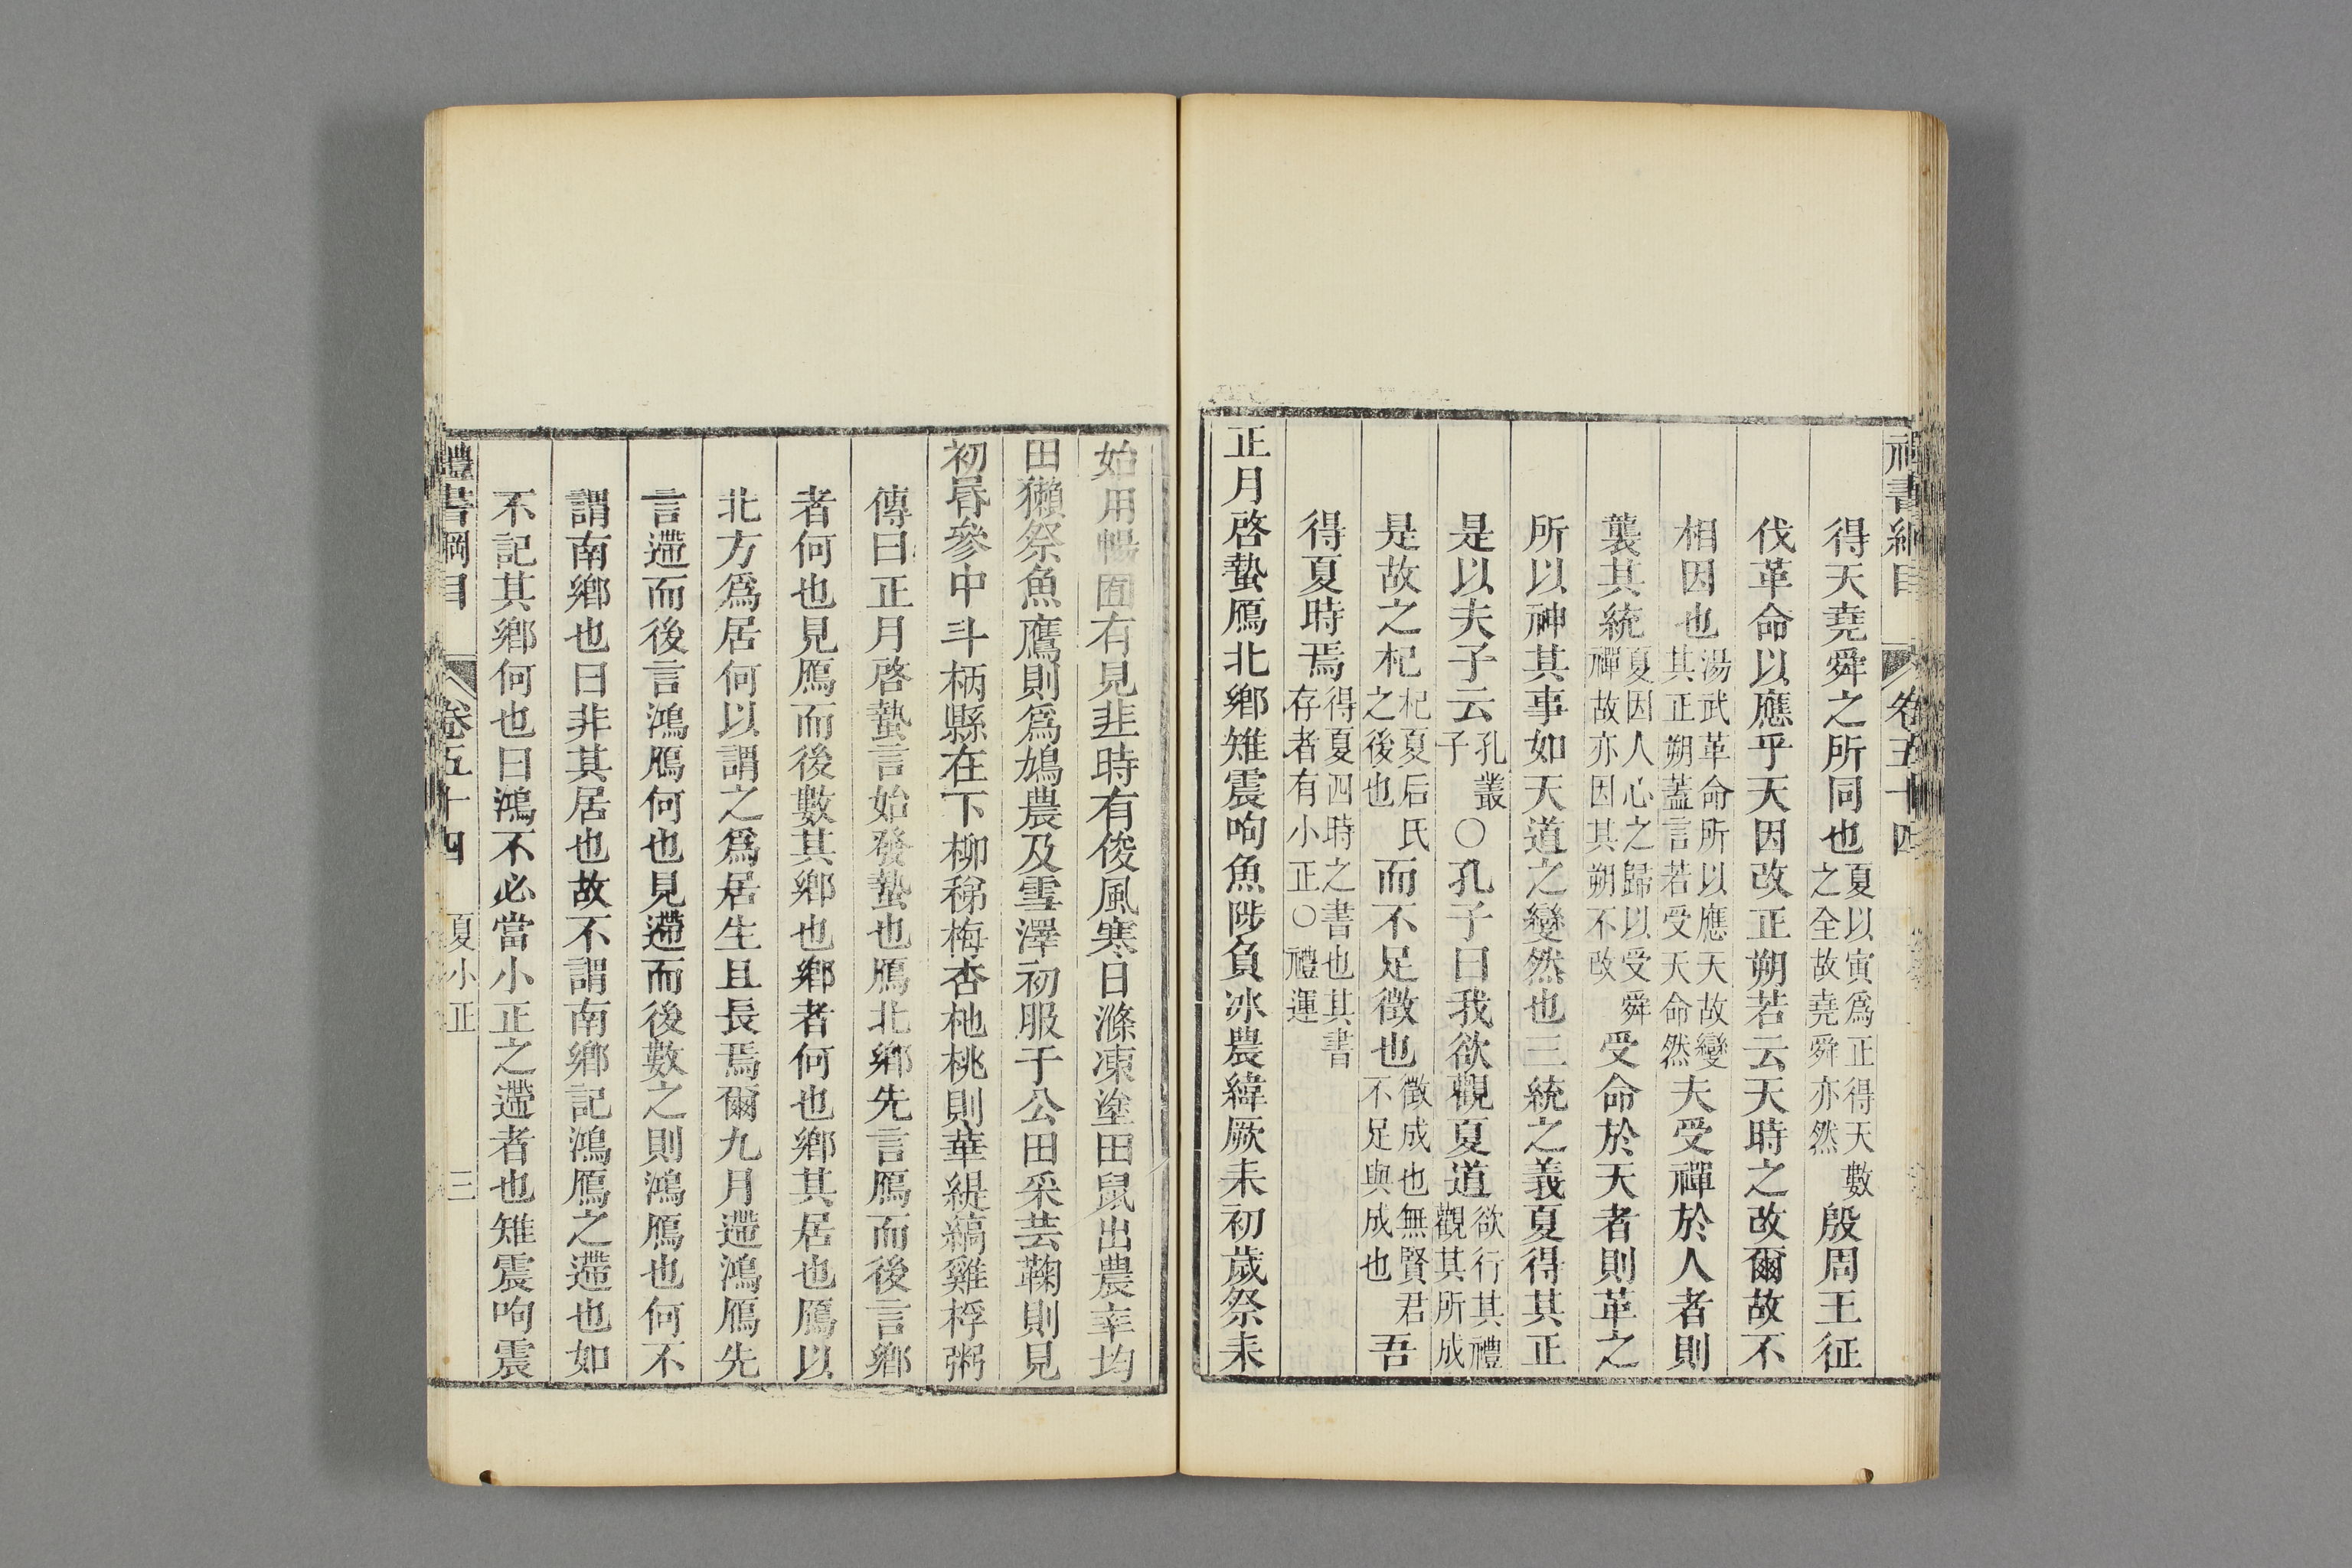 禮書綱目 卷五十四
得天堯舜之所同也夏以寅爲正得天數之全故堯舜亦然殷周王征
伐革命以應乎天因改正朔若云天時之改爾故不
相因也湯武革命所以應天故變其正朔蓋言若受天命然夫受禪於人者則
襲其統夏因人心之歸以受舜禪故亦因其朔不改受命於天者則革之
所以神其事如天道之變然也三統之義夏得其正
是以夫子云孔叢子〇孔子曰我欲觀夏道欲行其禮觀其所成
是故之杞杞夏后氏之後也而不足徵也徵成也無賢君不足與成也吾
得夏時焉得夏四時之書也其書存者有小正〇禮運
正月啓蟄鴈北鄉雉震呴魚陟負冰農緯厥耒初歲祭耒
始用暢囿有見韭時有俊風寒日滌凍塗田鼠出農率均
田獺祭魚鷹則爲鳩農及雪澤初服于公田采芸鞠則見
初昏參中斗柄縣在下柳稊梅杏杝桃則華緹縞雞桴粥
傳曰正月啓蟄言始發蟄也鴈北鄉先言鴈而後言鄉
者何也見鴈而後數其鄉也鄉者何也鄉其居也鴈以
北方爲居何以謂之爲居生且長焉爾九月遰鴻鴈先
言遰而後言鴻鴈何也見遰而後數之則鴻鴈也何不
謂南鄉也曰非其居也故不謂南鄉記鴻鴈之遰也如
不記其鄉何也曰鴻不必當小正之遰者也雉震呴震
禮書綱目 卷五十四 夏小正 三